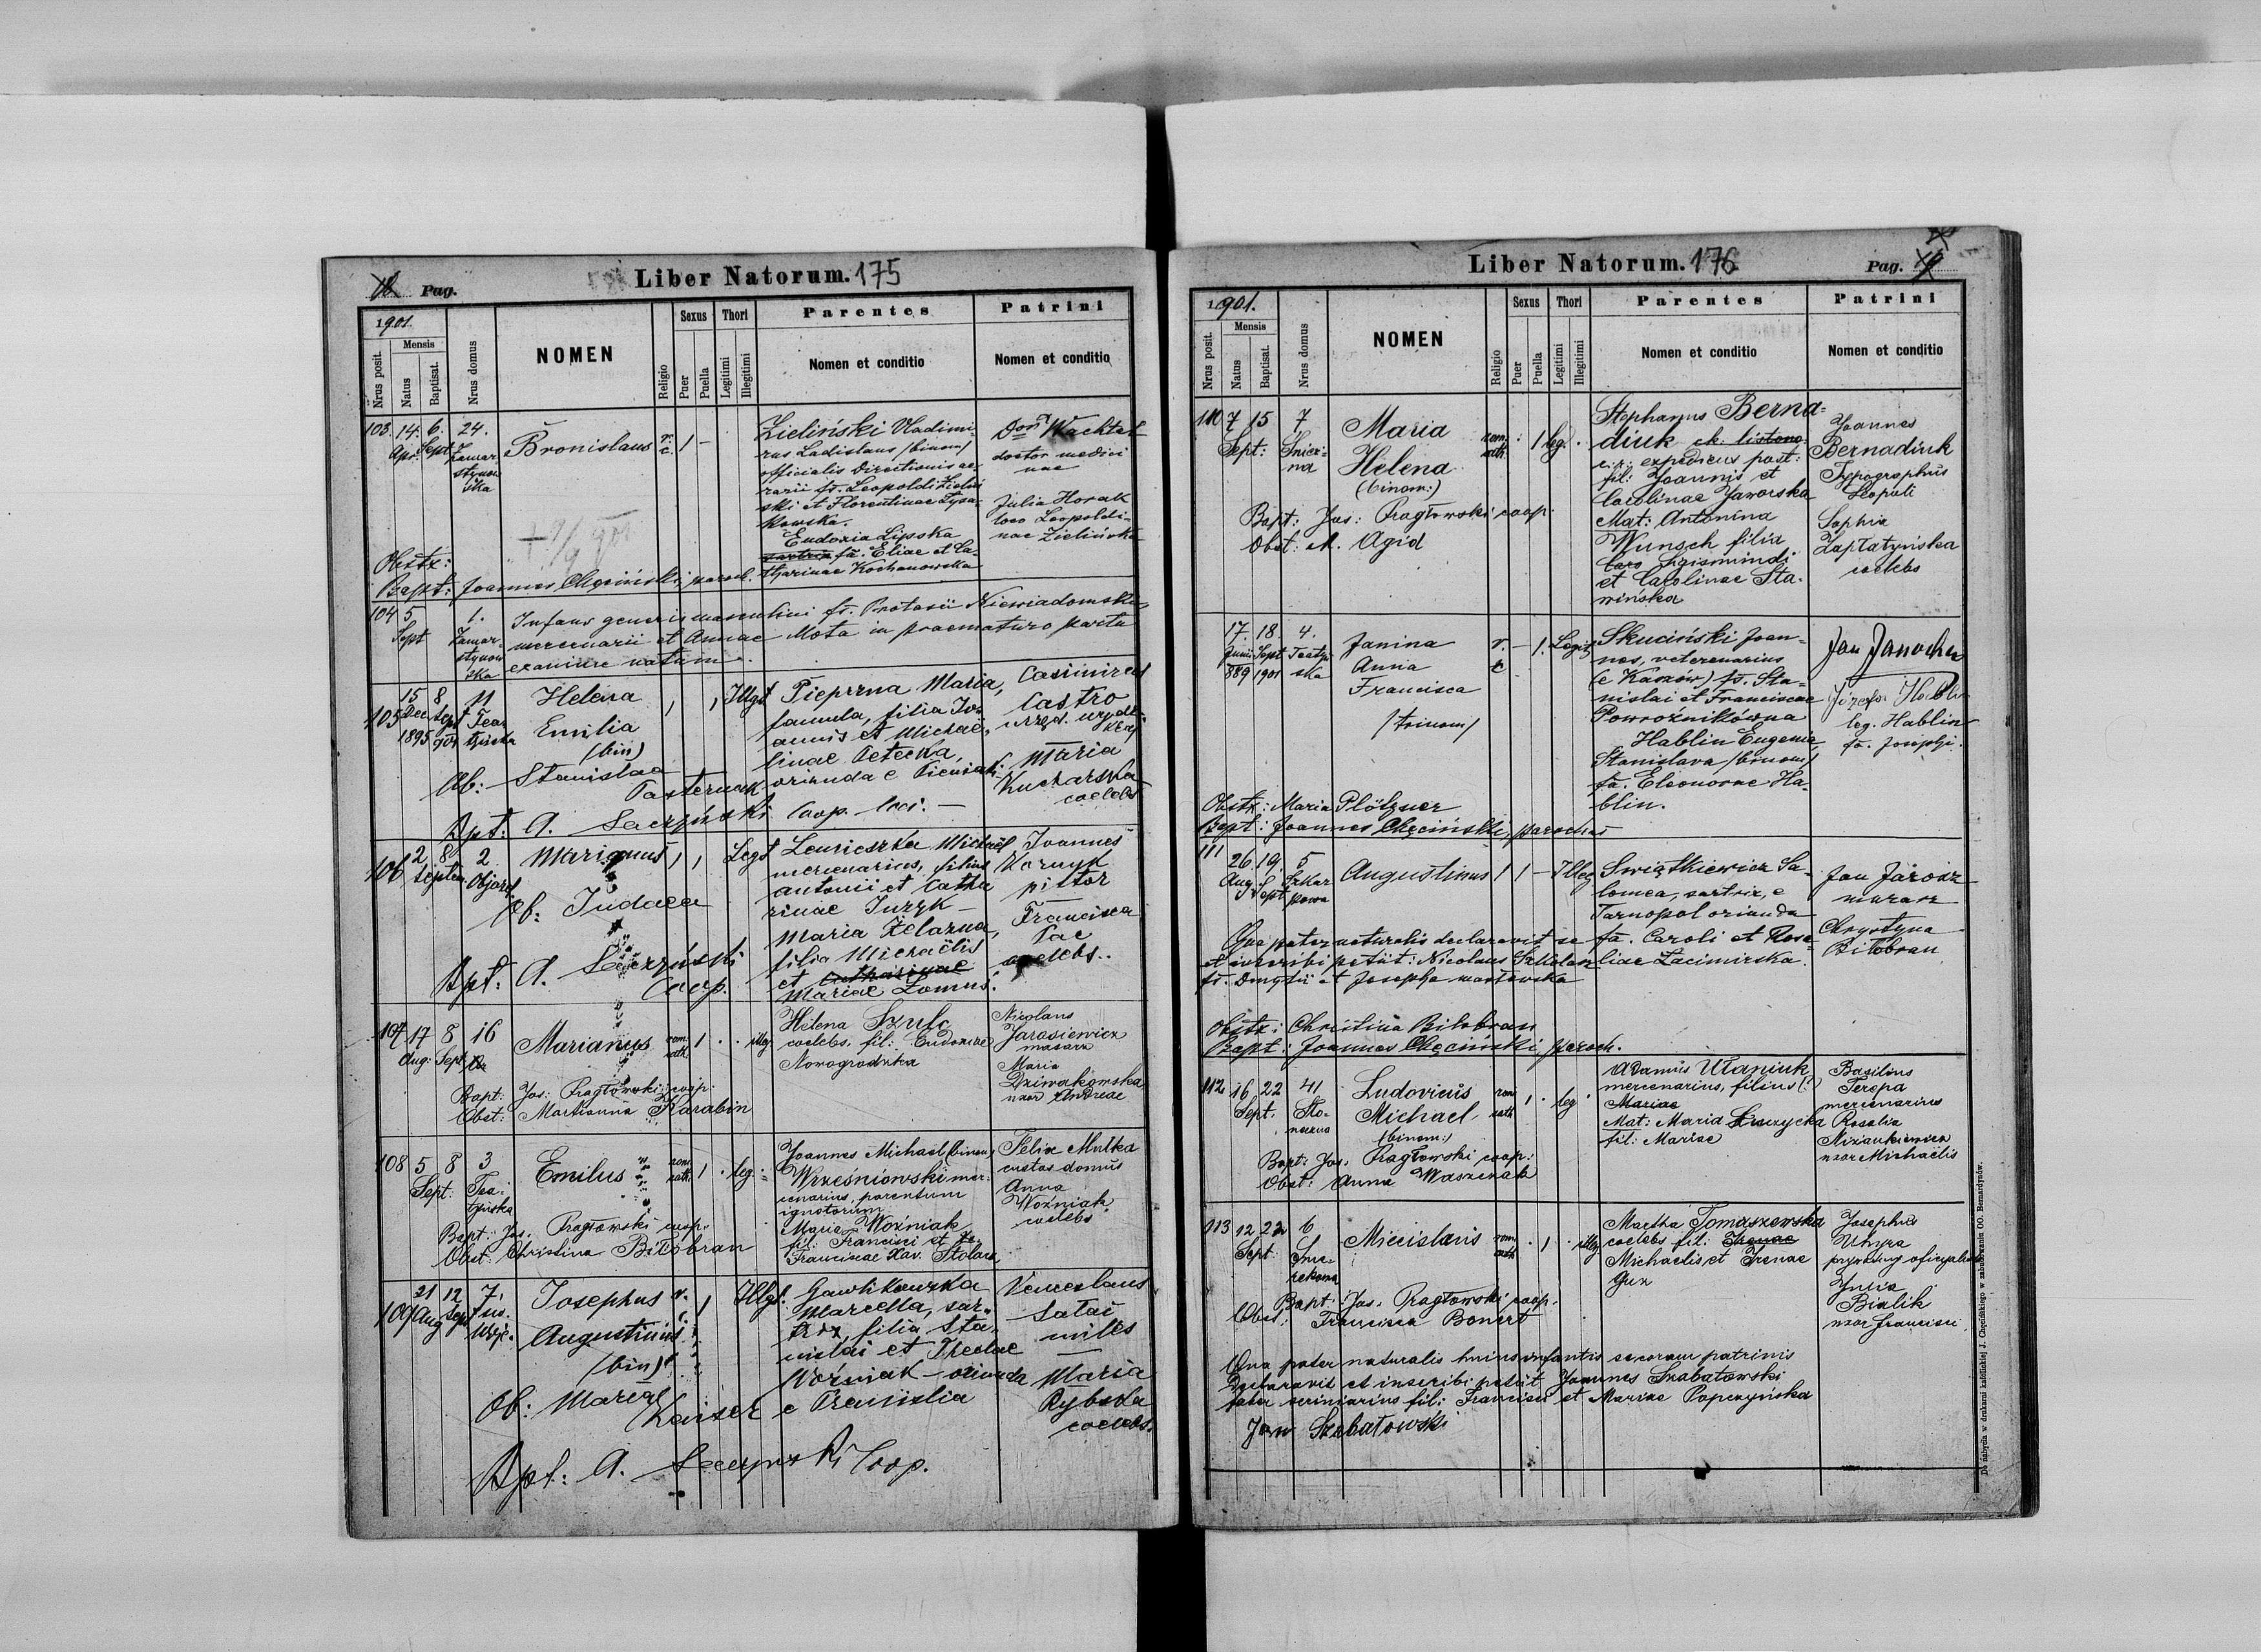 Pag.
Liber Natorum. 175
1901.
Nrus posit.
Mensis
Natus
Baptisat.
Nrus domus
NOMEN
Religio
Sexus
Puer
Puella
Thori
Legitimi
Illegitimi
Parentes
Nomen et conditio
Patrini
Nomen et conditio
103. 14. Apr. 6. Sept 24.
Zamar-
stynow
ska
Bronislaus
r. c. 1 -
Zieliński Vladimi-
rus Ladislaus (binom)
officialis Directionis ae-
rarii fs. Leopoldi Zieliń
ski et Florentinae
Eudoxia Lipska
fa. Eliae et Ca-
tharinae Kochanowska
Wachtel
doctor medici
nae
Julia Horak
loco Leopoldi-
nae Zielińska
Obstx:
Bapt: Joannes Chęciński, paroch.
104 5 Sept 1.
Zamar-
stynow
ska
Infans generis masculini fs. Protasii Niewiadomski,
mercenarii et Annae Mota in praematuro partu
exanime natum.
105 15 Dec 1895 8 Sept 901 11
Tea-
tyńska
Helena
Emilia
(bin)
Illgt
Pieprzna Maria,
famula, filia Jo-
annis et Michae-
linae Petecka,
oriunda e Pieniaki
Casimirus
Castro
urzęd. wydz.
kraj
Maria
Kucharska
coelebs
Ob: Stanislaa
Pasternak
Bpt: A. Saczyński Coop. loci. -
106 2 Septem. 8 2
Objazd
Marianus
1 1 Legt
Lewieszka Michaël
mercenarius, filius
Antonii et Catha
rinae Juzyk -
Maria Żelazna,
filia Michaëlis
et Catharinae
Mariae Zomuś.
Joannes
Kornyk
pictor
Francisca
Pac
coelebs..
Ob: Judaea
Bpt. A. Saczyński
Coop.
107 17 Aug: 8 Sept. 16
Marianus
rom. cath. 1 . . illeg
Helena Szulc
coelebs. fil: Eudoxiae
Nowogrodzka
Nicolaus
Jarosiewicz
masarz
Maria
Dziwakowska
uxor Andreae
Bapt: Jos: Pragłowski coop:
Obst: Marianna Karabin
108 5 Sept. 8 3
Tea-
tyńska
Emilus
rom. cath. 1 . leg:
Joannes Michael (binom)
Wrześniowski mer-
cenarius, parentum
ignotorum
Maria Woźniak
fil: Francisci et
Franciscae Xav. Stolarz
Felix Mulka
custos domus
Anna
Woźniak
coelebs
Bapt: Jos. Pragłowski coop.
Obst: Christina Biłobran
109 21 Aug 12 Sept 7.
Josephus
Augustinus
(bin)
r. c. 1 Illgt.
Gawlikowska
Marcella, sar-
trix, filia Sta-
nislai et Theclae
Woźniak - oriunda
e Praemislia
Venceslaus
Satač
miles
-
Maria
Rybska
coelebs.
Ob: Maria
Kaiser
Bpt: A. Saczyński Coop.
Liber Natorum. 176
Pag.
1901.
Nrus posit.
Mensis
Natus
Baptisat.
Nrus domus
NOMEN
Religio
Sexus
Puer
Puella
Thori
Legitimi
Illegitimi
Parentes
Nomen et conditio
Patrini
Nomen et conditio
110 7 Sept: 15 7
Śnież-
na
Maria
Helena
(binom:)
rom. cath. . 1 leg. .
Stephanus Berna-
diuk
expediens post:
fil: Joannis et
Carolinae Jaworska
Mat: Antonina
Wunsch filia
Sigismundi
et Carolinae Sta-
wińska
Joannes
Bernadiuk
Typographus
Leopoli
Sophia
Zapłatyńska
coelebs
Bapt: Jos: Pragłowski coop:
Obst: M. Agid
17. Junii 889 18. Sept 1901 4.
Teatyń
ska
Janina
Anna
Francisca
(trinom)
r. c - 1. Legit.
Skuciński Joan-
nes, veterenarius
fs. Sta-
nislai et Franciscae
Powroźnikówna
Hablin Eugenia,
Stanislava (binom)
fa. Eleonorae Ha-
blin.
Jan Janocha
Józefa Hablin
leg. Hablin
fa. Josephi.
Obstx: Maria Plötzner
Bapt: Joannes Chęciński, parochus
111 26 Aug. 19 Sept 5
Szkar
powa
Augustinus 1 1 - Illeg
Swiątkiewicz Sa-
lomea, sartrix, e
Tarnopol oriunda
fa. Caroli et Rosa-
liae Lacimirska.
Jan Jarosz
murarz
Chrystyna
Biłobran
Qua pater naturalis declaravit se
et inscribi petiit: Nicolaus
fs. et Josepha
Obstx: Christina Biłobran
Bapt: Joannes Chęciński, paroch.
112 16 Sept. 22 41
Sło-
neczna
Ludovicus
Michael
(binom:)
rom cath 1 . leg .
Adamus Ułaniuk
mercenarius, filius (?)
Mariae
Mat: Maria
fil: Mariae
Basilius
Terepa
mercenarius
Rosalia
Nizankiewicz
uxor Michaelis
Bapt: Jos. Pragłowski coop:
Obst: Anna Waszczuk
113 12 Sept: 22 6
Miecislaus
rom. cath . 1 . illeg.
Martha Tomaszewska
coelebs fil: Irenae
Michaelis et Irenae
Guz
Josephus
Uhyra
prywatny oficyalista
Julia
Bialik
uxor Francisci.
Bapt: Jos. Pragłowski coop.
Obst: Francisca Bonert
Qua pater naturalis huius infantis se coram patrinis
Declaravit et inscribi petiit Joannes Szabatowski
faber scriniarius fil: Francisci et Mariae Popczyńska
Jan Szabatowski
Do nabycia w drukarni katolickiej J. Chęcińskiego w zabudowaniu OO. Bernardynów.